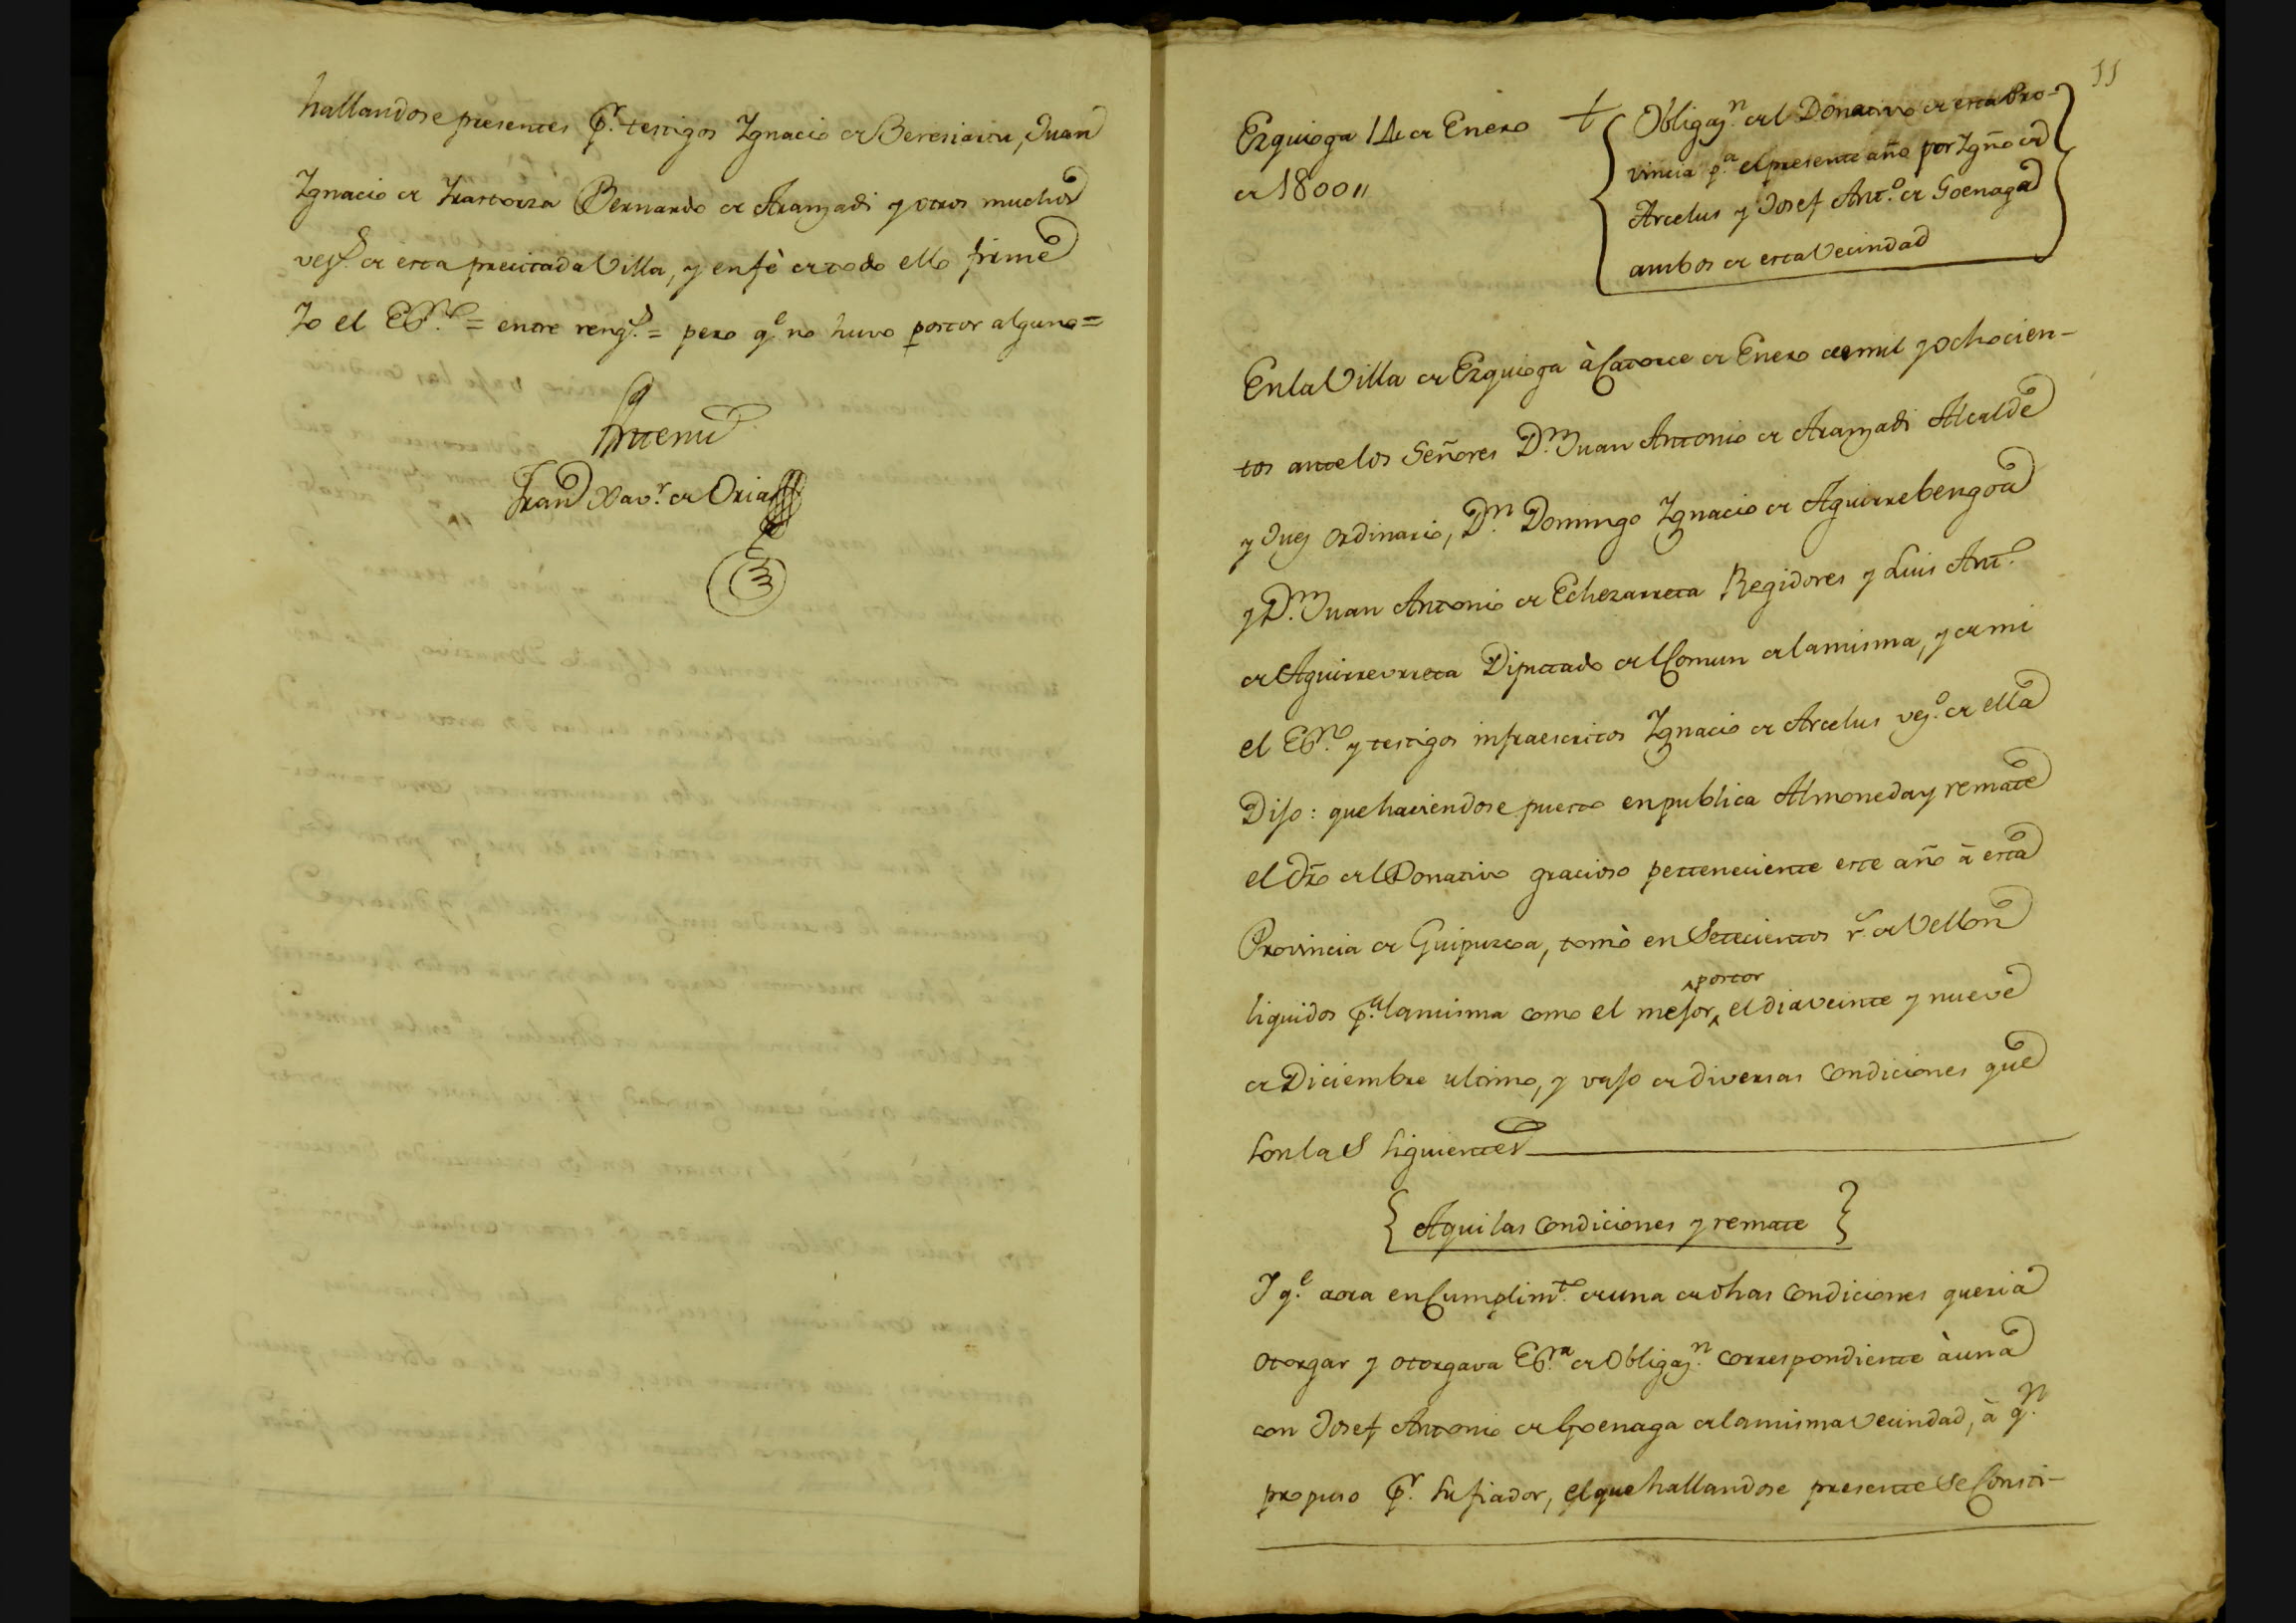 hallandose presentes pr. testigos Ygnacio de Beresiartu, Juan
Ygnacio de Yrastorza Bernardo de Aramzadi y otros muchos
vezs. de esta precitada Villa, y en fè de todo ello firmè
Yo el Essno. = entre rengs. = pero qe. no huvo postor alguno =
Antemi
Franco Xavr. de Oria
11
Ezquioga 14 de Enero
de 1800 "
Obligazn. del Donativo de esta Pro-
vincia pa. el presente año por Ygño de
Arcelus y Josef Anto. de Goenaga
ambos de esta Vecindad
En la Villa de Ezquioga à Catorce de Enero de mil y ochocien-
tos ante los Señores Dn. Juan Antonio de Aramzadi Alcalde
y Juez ordinario, Dn. Domingo Ygnacio de Aguirrebengoa
y Dn. Juan Antonio de Echezarreta Regidores y Luis Anto.
de Aguirreurreta Diputado del Comun de la misma, y de mi
el Essno. y testigos infraescritos Ygnacio de Arcelus vezo. de ella
Dijo: que haviendose puesto en publica Almoneda y remate
el dro del Donativo gracioso perteneciente este año à esta
Provincia de Guipuzcoa, tomò en Setecientos rs. de Vellon
liquidos pa. la misma como el mejor postor el dia veinte y nueve
de Diciembre ultimo, y vajo de diversas Condiciones que
son las siguientes
Aqui las Condiciones y remate
Y qe. aora en Cumplimto. de una de dhas Condiciones queria
otorgar y otorgava Essra. de Obligazn. correspondiente à una
con Josef Antonio de Goenaga de la misma Vecindad, à qn.
propuso pr. su fiador, el que hallandose presente se Consti-